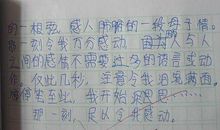 的一根靓 感人肺腑的一段母子情。
那一刻令我万分感动，因为人与人
之间的感情不需要过多的语言或动
作。仅此几秒，辛苦令我泪流满面。
停笔至此，我开始思……
那一刻，足以令我感动。